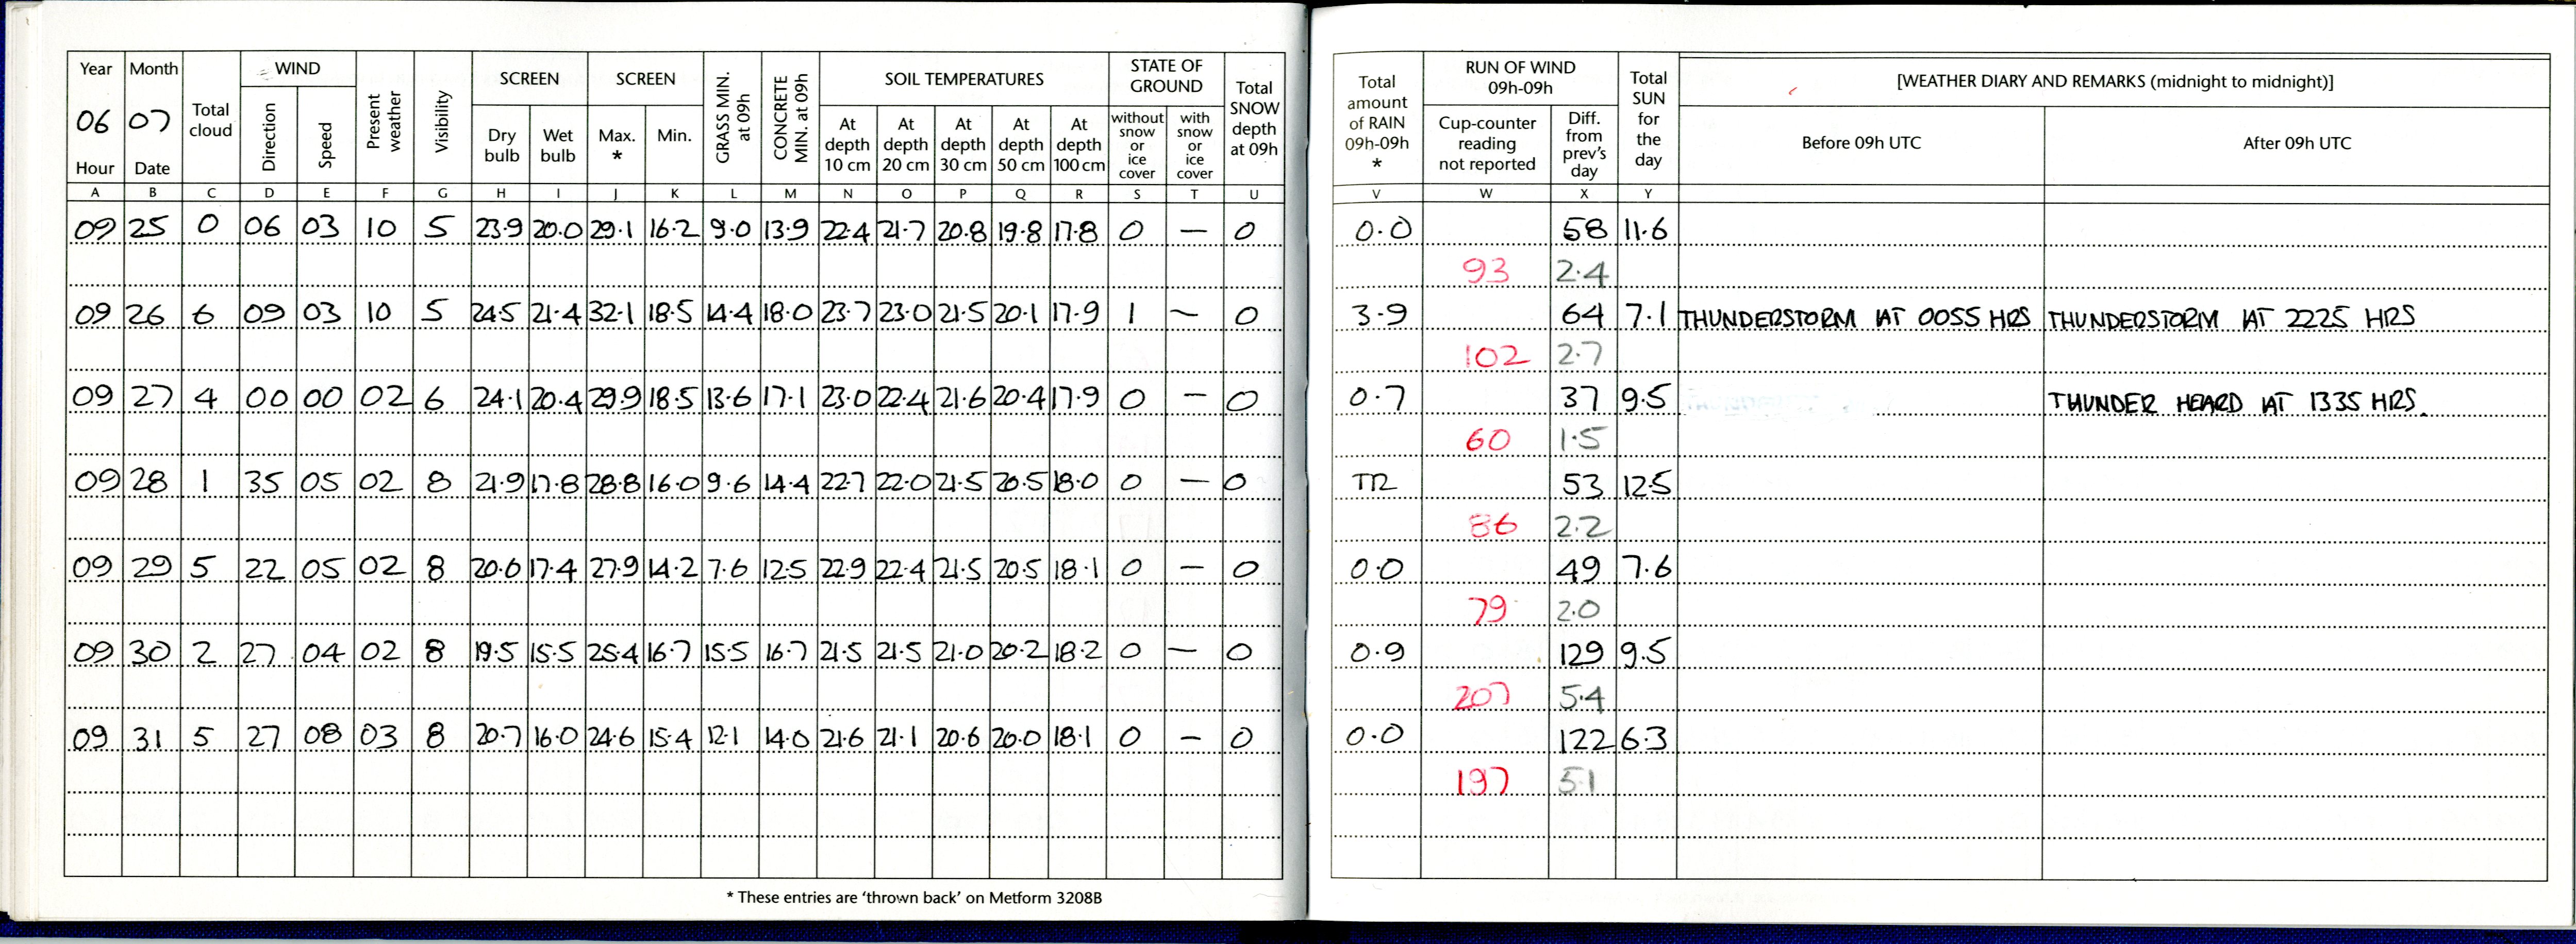 Year Month Total cloud WIND Present weather Visibility SCREEN SCREEN GRASS MIN. at 09h CONCRETE MIN. at 09h SOIL TEMPERATURES STATE OF GROUND Total SNOW depth at 09h Total amount of RAIN 09h-09h * RUN OF WIND 09h-09h Total SUN for the day [WEATHER DIARY AND REMARKS (midnight to midnight)]
06 07
Hour Date Direction Speed Dry bulb Wet bulb Max. * Min. At depth 10 cm At depth 20 cm At depth 30 cm At depth 50 cm At depth 100 cm without snow or ice cover with snow or ice cover Cup-counter reading not reported Diff. from prev's day Before 09h UTC After 09h UTC
A B C D E F G H I J K L M N O P Q R S T U V W X Y
09 25 0 06 03 10 5 23.9 20.0 29.1 16.2 9.0 13.9 22.4 21.7 20.8 19.8 17.8 0 — 0 0.0 58 11.6
93 2.4
09 26 6 09 03 10 5 24.5 21.4 32.1 18.5 14.4 18.0 23.7 23.0 21.5 20.1 17.9 1 — 0 3.9 64 7.1 THUNDERSTORM AT 0055 HRS THUNDERSTORM AT 2225 HRS
102 2.7
09 27 4 00 00 02 6 24.1 20.4 29.9 18.5 13.6 17.1 23.0 22.4 21.6 20.4 17.9 0 — 0 0.7 37 9.5 THUNDER HEARD AT 1335 HRS.
60 1.5
09 28 1 35 05 02 8 21.9 17.8 28.8 16.0 9.6 14.4 22.7 22.0 21.5 20.5 18.0 0 — 0 TR 53 12.5
86 2.2
09 29 5 22 05 02 8 20.6 17.4 27.9 14.2 7.6 12.5 22.9 22.4 21.5 20.5 18.1 0 — 0 0.0 49 7.6
79 2.0
09 30 2 27 04 02 8 19.5 15.5 25.4 16.7 15.5 16.7 21.5 21.5 21.0 20.2 18.2 0 — 0 0.9 129 9.5
207 5.4
09 31 5 27 08 03 8 20.7 16.0 24.6 15.4 12.1 14.0 21.6 21.1 20.6 20.0 18.1 0 — 0 0.0 122 6.3
197 5.1
* These entries are 'thrown back' on Metform 3208B